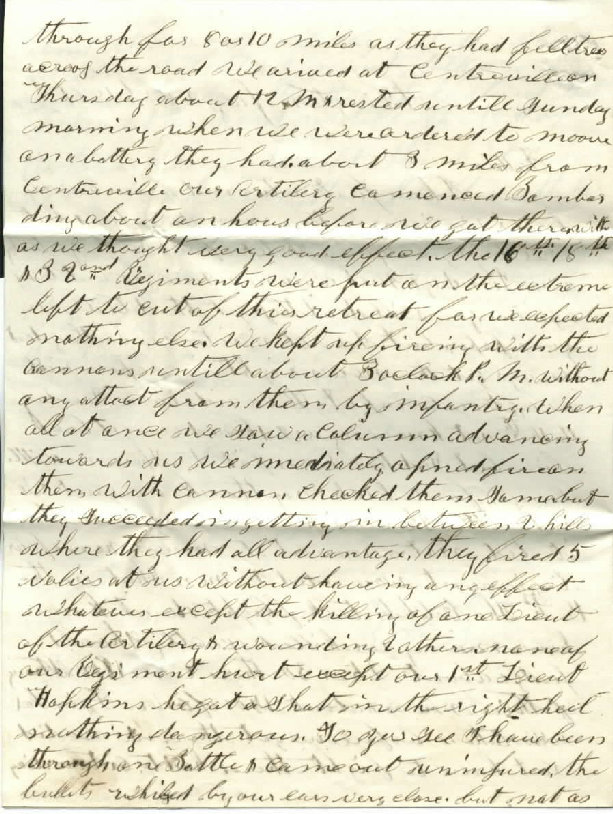 through for 8 or 10 miles as they had fell trees
across the road We arived at Centreville on
Thursday about 12 M & rested untill Sunday
morning when we were ordered to moove
on a battery they had about 3 miles from
Centreville our Artilery Comenced Bombar
ding about an hour before we got there with
as we thought very good effect. the 16th 18th
& 32nd Regiments were put on the extreme
left to cut of this retreat for we expected
nothing else. We kept up fireing with the
cannons untill about 3 oclock P. M. without
any attact from them by infantry. When
all at once we saw a Column advancing
towards us we imediately opned fire on
them with cannon checked them some but
they succeeded in getting in between 2 hills
where they had all advantage. they fired 5
volies at us without haveing any effect
whatever except the killing of one Lieut
of the Artilery & wounding 2 others none of
our Regiment hurt except our 1st Lieut
Hopkins he got a shot in the right heel
nothing dangerous. So you see I have been
through one Battle & came out uninjured. the
bullets whiled by our ears very close. but not as